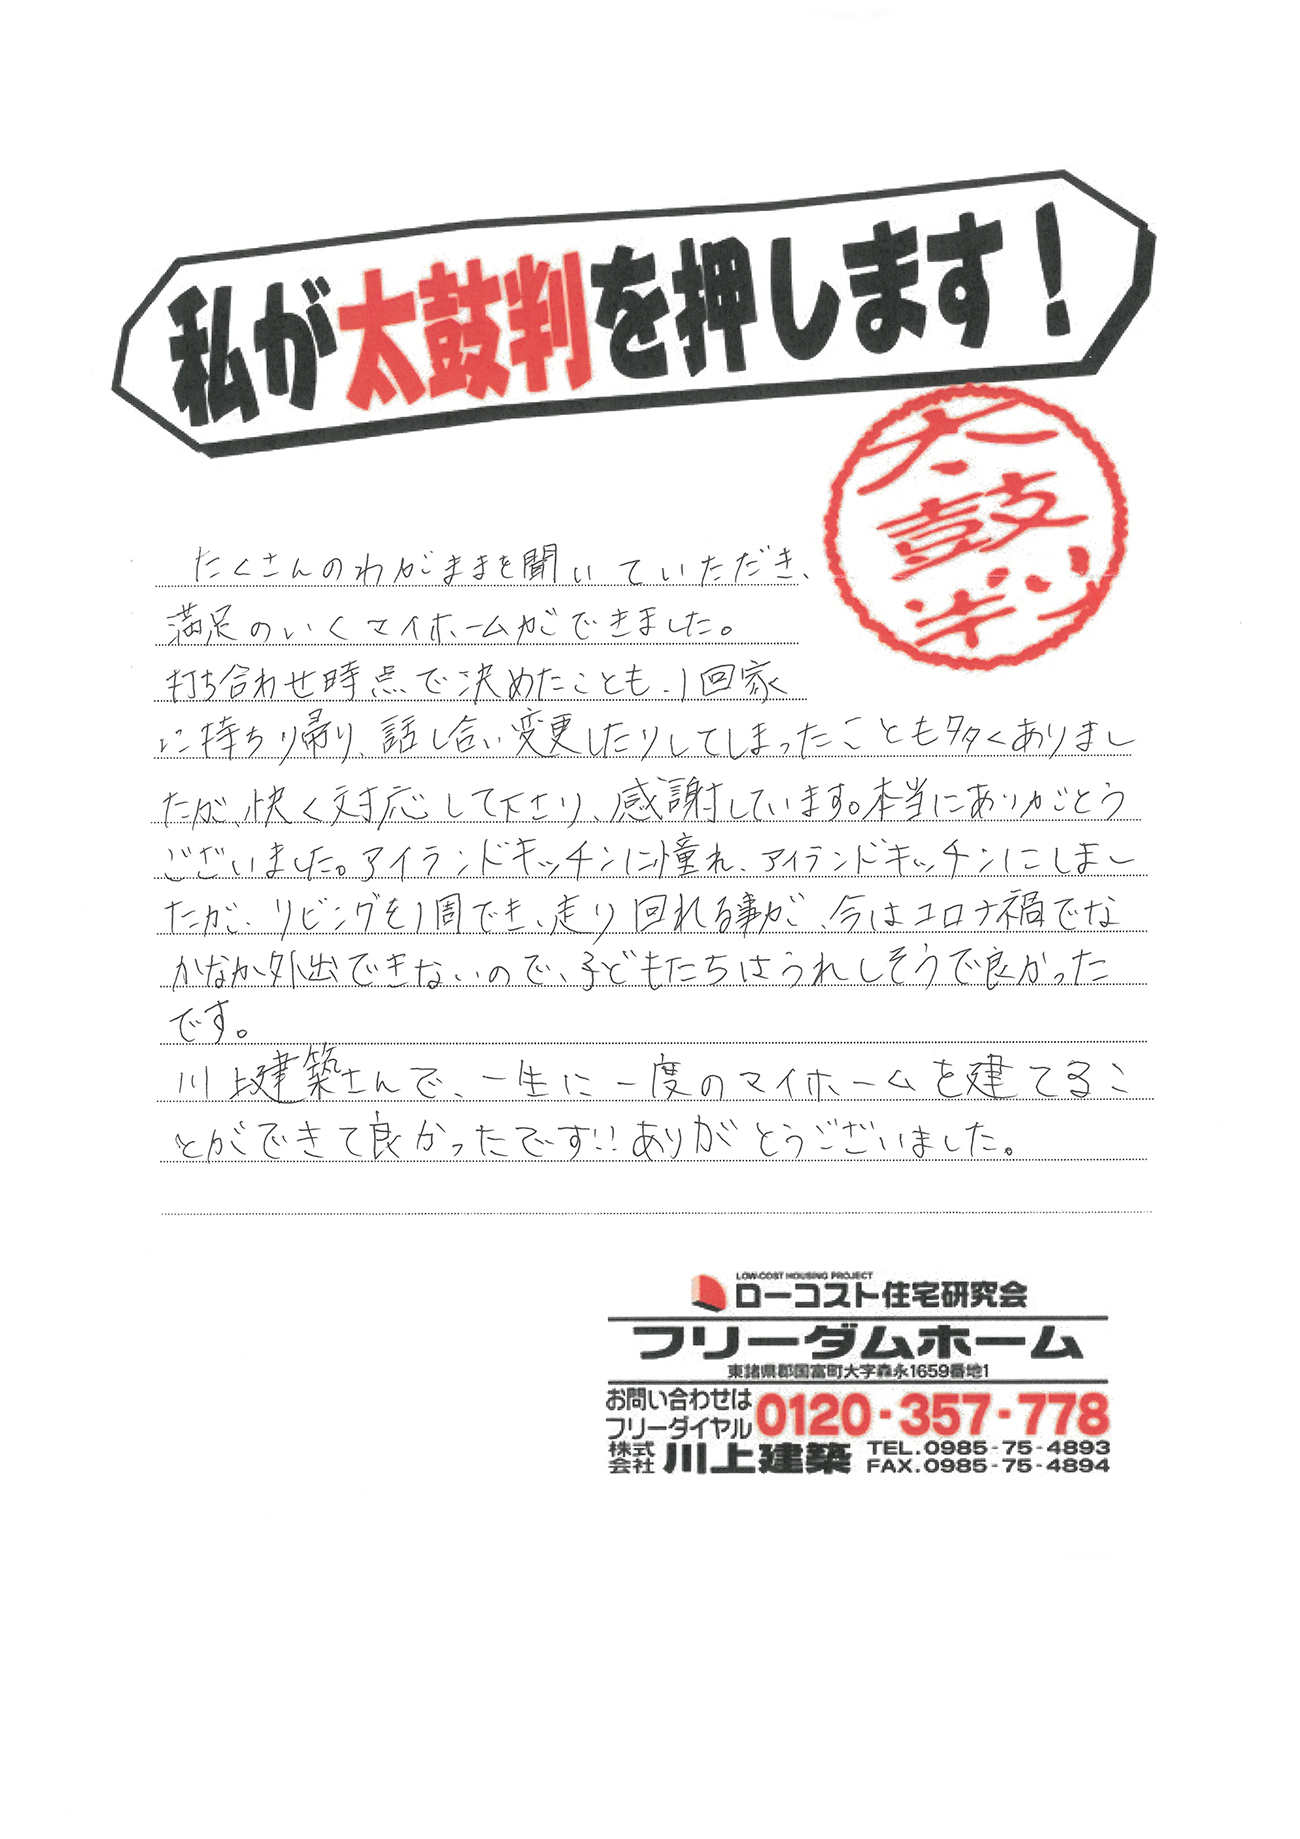 私が太鼓判を押します！
太鼓判
たくさんのわがままを聞いていただき、
満足のいくマイホームができました。
打ち合わせ時点で決めたことも、1回家
に持ち帰り、話し合い変更したりしてしまったことも多くありまし
たが、快く対応して下さり、感謝しています。本当にありがとう
ございました。アイランドキッチンに憧れ、アイランドキッチンにしまし
たが、リビングを1周でき、走り回れる事が、今はコロナ禍でな
かなか外出できないので、子どもたちはうれしそうで良かった
です。
川上建築さんで、一生に一度のマイホームを建てるこ
とができて良かったです!!ありがとうございました。
LOW-COST HOUSING PROJECT
ローコスト住宅研究会
フリーダムホーム
東諸県郡国富町大字森永1659番地1
お問い合わせは
フリーダイヤル 0120-357-778
株式会社 川上建築 TEL.0985-75-4893
FAX.0985-75-4894